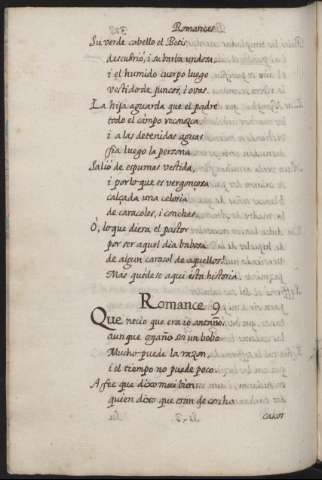 Romances
Su verde cabello el Betis
descubrió, i su barba undosa
i el humido cuerpo luego
vestido de juncos, i ovas.
La hija aguarda que el padre
todo el campo reconozca
i a las detenidas aguas
fia luego la persona
Salió de espumas vestida,
i por lo que es vergonçosa
calçada una celosia
de caracoles, i conchas
O, lo que diera el pastor
por ser aquel dia babosa
de algun caracol de aquellos!
Mas quedese aqui esta historia.
Romance 9
Que necio que era io antaño,
aunque ogaño soi un bobo
Mucho puede la razon
i el tiempo no puede poco
A fée que dixo mui bien
quien dixo que eran de corcho